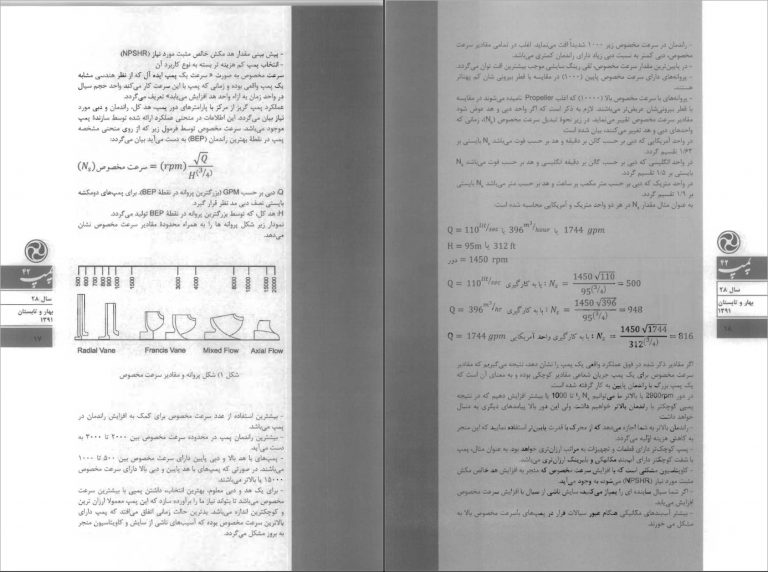 - پیش بینی مقدار هد مکش خالص مثبت مورد نیاز (NPSHR)
- انتخاب پمپ کم هزینه تر بسته به نوع کاربرد آن
سرعت مخصوص به صورت « سرعت یک پمپ ایده آل که از نظر هندسی مشابه
یک پمپ واقعی بوده و زمانی که پمپ با این سرعت کار می‌کند واحد حجم سیال
در واحد زمان به ازاء واحد هد افزایش می‌یابد» تعریف می‌گردد.
عملکرد پمپ گریز از مرکز با پارامترهای دور پمپ، هد کل، راندمان و دبی مورد
نیاز بیان می‌گردد. این اطلاعات در منحنی عملکرد ارائه شده توسط سازندهٔ پمپ
موجود می‌باشد. سرعت مخصوص توسط فرمول زیر که از روی منحنی مشخصه
پمپ در نقطهٔ بهترین راندمان (BEP) به دست می‌آید بیان می‌گردد:
(N_S) سرعت مخصوص = (rpm) √Q / H^(3/4)
Q: دبی بر حسب GPM (بزرگترین پروانه در نقطهٔ BEP). برای پمپ‌های دومکشه
بایستی نصف دبی مد نظر قرار گیرد.
H: هد کل، که توسط بزرگترین پروانه در نقطهٔ BEP تولید می‌گردد.
نمودار زیر شکل پروانه ها را به همراه محدودهٔ مقادیر سرعت مخصوص نشان
می‌دهد.
500 600 700 800 900 1000 1500 3000 4000 6000 10000 15000 20000
Radial Vane Francis Vane Mixed Flow Axial Flow
شکل ۱) شکل پروانه و مقادیر سرعت مخصوص
- بیشترین استفاده از عدد سرعت مخصوص برای کمک به افزایش راندمان در
پمپ می‌باشد.
- بیشترین راندمان پمپ در محدوده سرعت مخصوص بین ۲۰۰۰ تا ۳۰۰۰ به
دست می آید.
- پمپ‌های با هد بالا و دبی پایین دارای سرعت مخصوص بین ۵۰۰ تا ۱۰۰۰
می‌باشند، در صورتی که پمپ‌های با هد پایین و دبی بالا دارای سرعت مخصوص
۱۵۰۰۰ یا بالاتر می‌باشند.
- برای یک هد و دبی معلوم، بهترین انتخاب، داشتن پمپی با بیشترین سرعت
مخصوص می‌باشد تا بتواند نیاز ما را برآورده سازد که این پمپ معمولا ارزان ترین
و کوچکترین اندازه می‌باشد. بدترین حالت زمانی اتفاق می‌افتد که پمپ دارای
بالاترین سرعت مخصوص بوده که آسیب‌های ناشی از سایش و کاویتاسیون منجر
به بروز مشکل می‌گردد.
پمپ
۴۲
سال ۲۸
بهار و تابستان
۱۳۹۱
۱۷
- راندمان در سرعت مخصوص زیر ۱۰۰۰ شدیداً افت می‌نماید. اغلب در تمامی مقادیر سرعت
مخصوص، دبی کمتر به نسبت دبی زیاد دارای راندمان کمتری می‌باشد.
- در پایین‌ترین مقدار سرعت مخصوص، لقی رینگ سایشی موجب بیشترین افت توان می‌گردد.
- پروانه‌های دارای سرعت مخصوص پایین (۱۰۰۰) در مقایسه با قطر بیرونی شان کم پهناتر
هستند.
- پروانه‌های با سرعت مخصوص بالا (۱۰۰۰۰) که اغلب Propeller نامیده می‌شوند در مقایسه
با قطر بیرونی‌شان عریض‌تر می‌باشند. لازم به ذکر است که اگر واحد دبی و هد عوض شود
مقادیر سرعت مخصوص تغییر می‌نماید. در زیر نحوهٔ تبدیل سرعت مخصوص (N_S)، زمانی که
واحدهای دبی و هد تغییر می‌کنند، بیان شده است
در واحد آمریکایی که دبی بر حسب گالن بر دقیقه و هد بر حسب فوت می‌باشد N_S بایستی بر
۱/۶۳ تقسیم گردد.
در واحد انگلیسی که دبی بر حسب گالن بر دقیقه انگلیسی و هد بر حسب فوت می‌باشد N_S
بایستی بر ۱/۵ تقسیم گردد.
در واحد متریک که دبی بر حسب متر مکعب بر ساعت و هد بر حسب متر می‌باشد N_S بایستی
بر ۱/۹ تقسیم گردد.
به عنوان مثال مقدار N_S در هر دو واحد متریک و آمریکایی محاسبه شده است.
Q = 110 lit/sec یا 396 m³/hour یا 1744 gpm
H = 95m یا 312 ft
دور = 1450 rpm
Q = 110 lit/sec با به کارگیری : N_S = 1450 √110 / 95^(3/4) = 500
Q = 396 m³/hr با به کارگیری : N_S = 1450 √396 / 95^(3/4) = 948
Q = 1744 gpm با به کارگیری واحد آمریکایی : N_S = 1450 √1744 / 312^(3/4) = 816
اگر مقادیر ذکر شده در فوق عملکرد واقعی یک پمپ را نشان دهد، نتیجه می‌گیریم که مقادیر
سرعت مخصوص برای یک پمپ جریان شعاعی مقادیر کوچکی بوده و به معنای آن است که
یک پمپ بزرگ با راندمان پایین به کار گرفته شده است.
در دور 2900rpm یا بالاتر ما می‌توانیم N_S را تا 1000 یا بیشتر افزایش دهیم که در نتیجه
پمپی کوچکتر با راندمان بالاتر خواهیم داشت. ولی این دور بالا پیامدهای دیگری به دنبال
خواهد داشت:
- راندمان بالاتر به شما اجازه می‌دهد که از محرک با قدرت پایین‌تر استفاده نمایید که این منجر
به کاهش هزینه اولیه می‌گردد.
- پمپ کوچکتر دارای قطعات و تجهیزات به مراتب ارزان‌تری خواهد بود. به عنوان مثال، پمپ
با شفت کوچکتر دارای آب‌بند مکانیکی و بلبرینگ ارزان‌تری می‌باشد.
- کاویتاسیون مشکلی است که با افزایش سرعت مخصوص که منجر به افزایش هد خالص مکش
مثبت مورد نیاز (NPSHR) می‌شود، به وجود می‌آید.
- اگر شما سیال ساینده ای را پمپاژ می‌کنید، سایش ناشی از سیال با افزایش سرعت مخصوص
افزایش می‌یابد.
- بیشتر آسیب‌های مکانیکی هنگام عبور سیالات فرار در پمپ‌های باسرعت مخصوص بالا به
مشکل می خورند.
پمپ
۴۲
سال ۲۸
بهار و تابستان
۱۳۹۱
۱۸